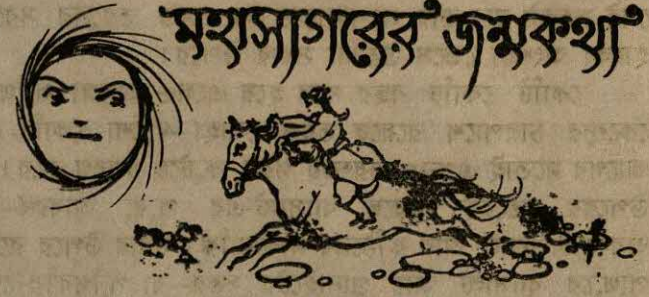 মহাসাগরের জন্মকথা